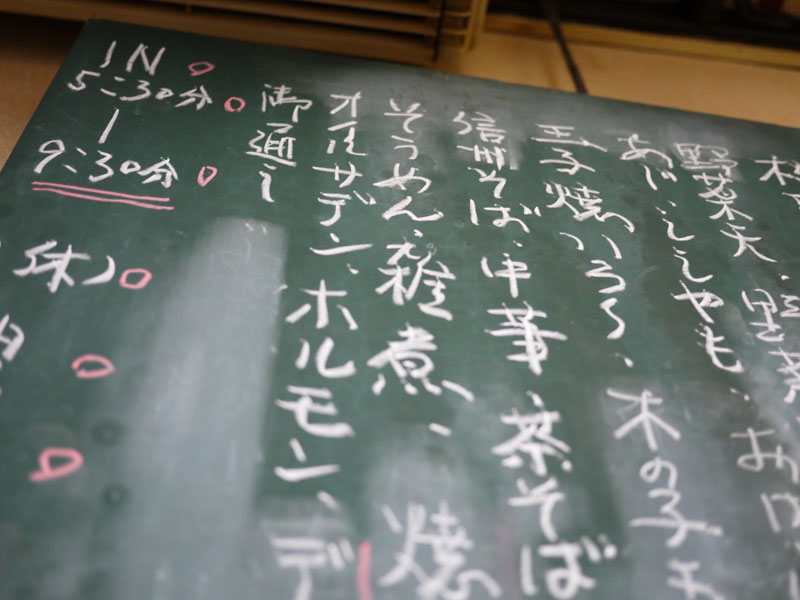 野菜天、野菜
あじ、ししやも、お
玉子焼いろ〱、木の子
信州そば、中華、茶そば
そうめん、雑煮、焼
オイルサデン、ホルモン、デ
御通し
IN
5:30分
9:30分
(休)